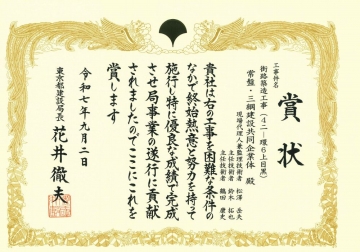 賞状
工事件名
街路築造工事(4二一環6上目黒)
常盤・三綱建設共同企業体 殿
現場代理人兼監理技術者 松澤 岳夫
主任技術者 鈴木 拓也
主任技術者 鶴田 康史
貴社は右の工事を困難な条件の
なかで終始熱意と努力を持って
施行し特に優良な成績で完成
させ局事業の遂行に貢献
されましたのでここにこれを
賞します
令和七年九月二日
東京都建設局長 花井徹夫